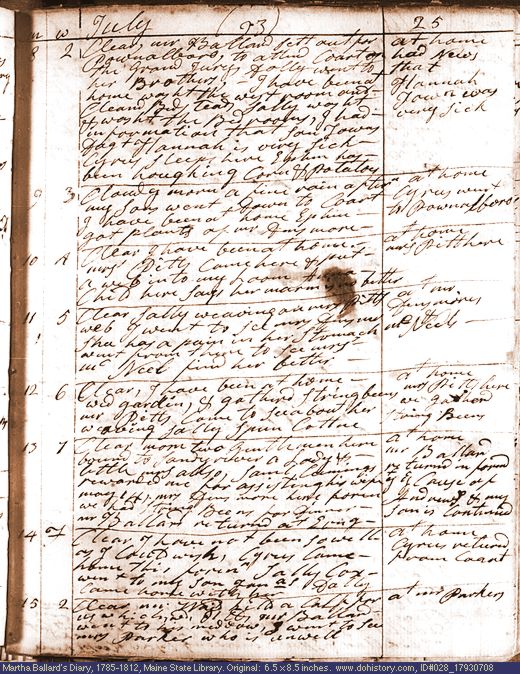 m w July (93) 25
8 2 Clear, mr Ballard sett out for
Pownalboro, to attend Court of
the Grand Jury. Dolly went to
her Brothers. I have been at
home washt the west room and
Clean Bed stead, Sally washt
& washt the Bed rooms, I had
information that son Towns
Dagt Hannah is very sick
Cyrus sleeps here Ephm has
been houghing Corn & Potatoes
at home
had News
that
Hannah
Town was
very sick
9 3 Cloudy morn a fine rain after
my Son went down to Coart
I have been at home Ephm
got plants of mr Densmore
at home
Cyrus went
to Pownalboro
10 4 Clear, I have been at home
mrs Pitts Came here & put
a web into my loom
Child here Says her marm is better
at home
mrs Pitt here
11 5 Clear Sally weaving on mrs Pitts
web I went to see mrs Densmore
Shee has a pain in her Stomach
went from there to see mrs
mc Neel find her better
at mr
Densmores
mc Neels
12 6 Clear, I have been at home
wed gardin, & gathered String beens
mrs Pitts Came to see about her
weaving Sally Spun Cottne
at home
mrs Pitts here
we gathered
String Beens
13 7 Clear morn two gentlemen here
bound to Sandy river a Lady &
bottle Salso, Saml Cummings
rewarded me for assisting his wife
may , mrs Densmore here foren
we had String Beens for Dinner
mr Ballard returned at Evng
at home
mr Ballard
returned informd
ye Cause of
& my
Son is Continued
14 Clear I have not been so well
as I Could wish Cyrus Came
home this foren Sally Cox
went to my Son Dolly
Came home with her
at home
Cyrus returnd
from Coart
15 2 Clear, mr a Calf for
us mr Ballard
went to meddow I went to see
mrs Parker who is unwell
at mr Parkers
Martha Ballard's Diary, 1785-1812, Maine State Library. Original: 6.5 x 8.5 inches. www.dohistory.com, ID#028_17930708